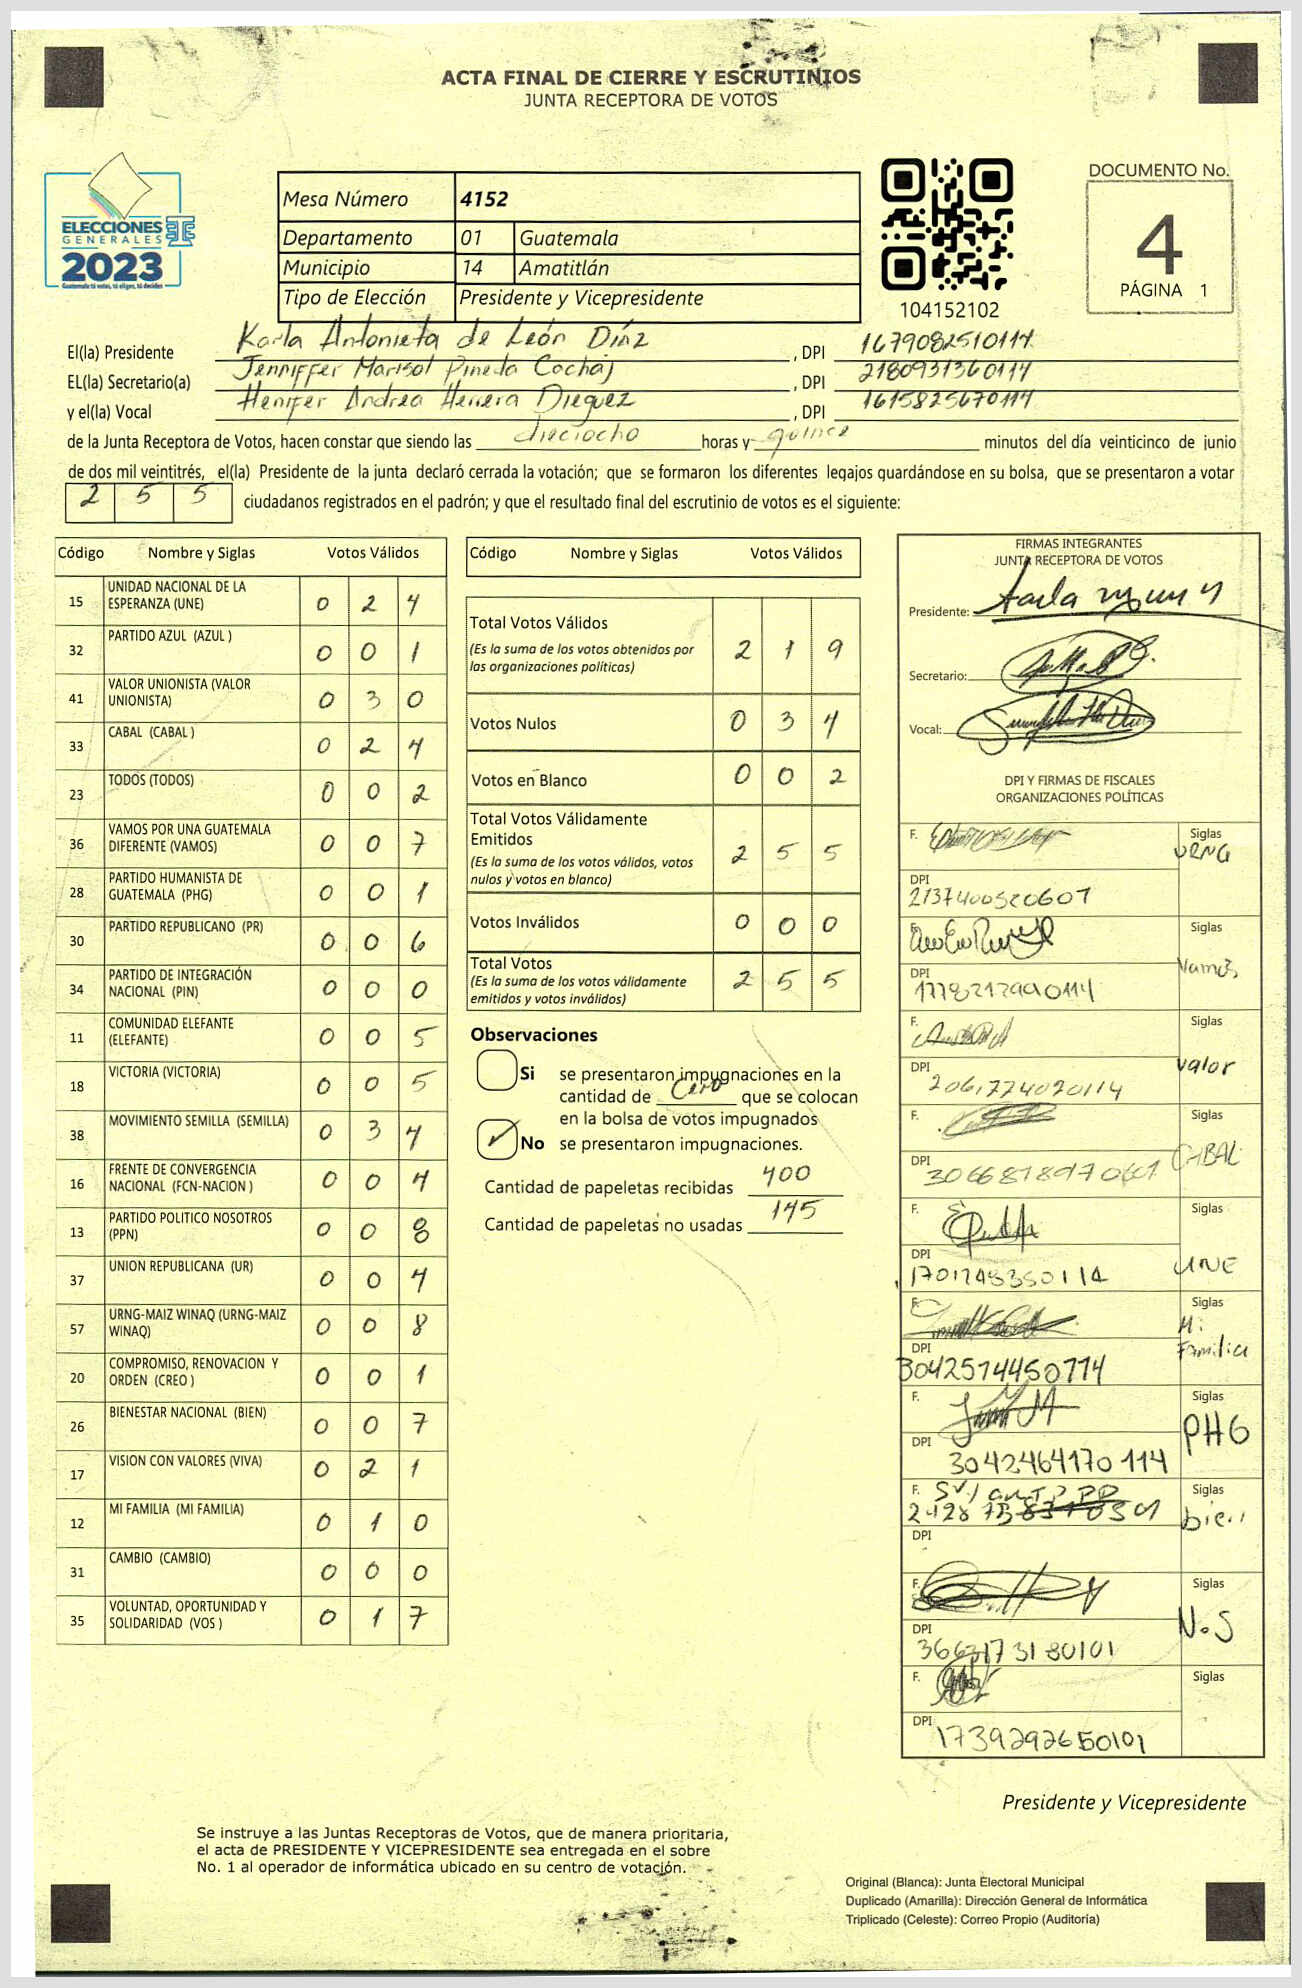 ACTA FINAL DE CIERRE Y ESCRUTINIOS
JUNTA RECEPTORA DE VOTOS
ELECCIONES
GENERALES
2023
Guatemala tú votas, tú eliges, tú decides
Mesa Número 4152
Departamento 01 Guatemala
Municipio 14 Amatitlán
Tipo de Elección Presidente y Vicepresidente
104152102
DOCUMENTO No.
4
PÁGINA 1
El(la) Presidente Karla Antonieta de León Díaz , DPI 1679082510114
EL(la) Secretario(a) Jenniffer Marisol Pineda Cachaj , DPI 2180931360114
y el(la) Vocal Henifer Andrea Herrera Dieguez , DPI 1615825670114
de la Junta Receptora de Votos, hacen constar que siendo las dieciocho horas y quince minutos del día veinticinco de junio
de dos mil veintitrés, el(la) Presidente de la junta declaró cerrada la votación; que se formaron los diferentes legajos guardándose en su bolsa, que se presentaron a votar
2 5 5 ciudadanos registrados en el padrón; y que el resultado final del escrutinio de votos es el siguiente:
Código Nombre y Siglas Votos Válidos
15 UNIDAD NACIONAL DE LA
ESPERANZA (UNE) 0 2 4
32 PARTIDO AZUL (AZUL ) 0 0 1
41 VALOR UNIONISTA (VALOR
UNIONISTA) 0 3 0
33 CABAL (CABAL ) 0 2 4
23 TODOS (TODOS) 0 0 2
36 VAMOS POR UNA GUATEMALA
DIFERENTE (VAMOS) 0 0 7
28 PARTIDO HUMANISTA DE
GUATEMALA (PHG) 0 0 1
30 PARTIDO REPUBLICANO (PR) 0 0 6
34 PARTIDO DE INTEGRACIÓN
NACIONAL (PIN) 0 0 0
11 COMUNIDAD ELEFANTE
(ELEFANTE) 0 0 5
18 VICTORIA (VICTORIA) 0 0 5
38 MOVIMIENTO SEMILLA (SEMILLA) 0 3 4
16 FRENTE DE CONVERGENCIA
NACIONAL (FCN-NACION ) 0 0 4
13 PARTIDO POLITICO NOSOTROS
(PPN) 0 0 8
37 UNION REPUBLICANA (UR) 0 0 4
57 URNG-MAIZ WINAQ (URNG-MAIZ
WINAQ) 0 0 8
20 COMPROMISO, RENOVACION Y
ORDEN (CREO ) 0 0 1
26 BIENESTAR NACIONAL (BIEN) 0 0 7
17 VISION CON VALORES (VIVA) 0 2 1
12 MI FAMILIA (MI FAMILIA) 0 1 0
31 CAMBIO (CAMBIO) 0 0 0
35 VOLUNTAD, OPORTUNIDAD Y
SOLIDARIDAD (VOS ) 0 1 7
Código Nombre y Siglas Votos Válidos
Total Votos Válidos
(Es la suma de los votos obtenidos por
las organizaciones políticas) 2 1 9
Votos Nulos 0 3 4
Votos en Blanco 0 0 2
Total Votos Válidamente
Emitidos
(Es la suma de los votos válidos, votos
nulos y votos en blanco) 2 5 5
Votos Inválidos 0 0 0
Total Votos
(Es la suma de los votos válidamente
emitidos y votos inválidos) 2 5 5
Observaciones
Si se presentaron impugnaciones en la
cantidad de Cero que se colocan
en la bolsa de votos impugnados
No se presentaron impugnaciones.
Cantidad de papeletas recibidas 400
Cantidad de papeletas no usadas 145
FIRMAS INTEGRANTES
JUNTA RECEPTORA DE VOTOS
Presidente:
Secretario:
Vocal:
DPI Y FIRMAS DE FISCALES
ORGANIZACIONES POLÍTICAS
F. Siglas
URNG
DPI
2137400520607
F. Siglas
Vamos
DPI
F. Siglas
Valor
DPI
2061774020114
F. Siglas
CABAL
DPI
F. Siglas
UNE
DPI
1701748350114
F. Siglas
Mi
Familia
DPI
3042574450774
F. Siglas
PHG
DPI
3042464170114
F. Siglas
bien
DPI
F. Siglas
N.S
DPI
3663173180101
F. Siglas
DPI
1739292650101
Presidente y Vicepresidente
Se instruye a las Juntas Receptoras de Votos, que de manera prioritaria,
el acta de PRESIDENTE Y VICEPRESIDENTE sea entregada en el sobre
No. 1 al operador de informática ubicado en su centro de votación.
Original (Blanca): Junta Electoral Municipal
Duplicado (Amarilla): Dirección General de Informática
Triplicado (Celeste): Correo Propio (Auditoría)